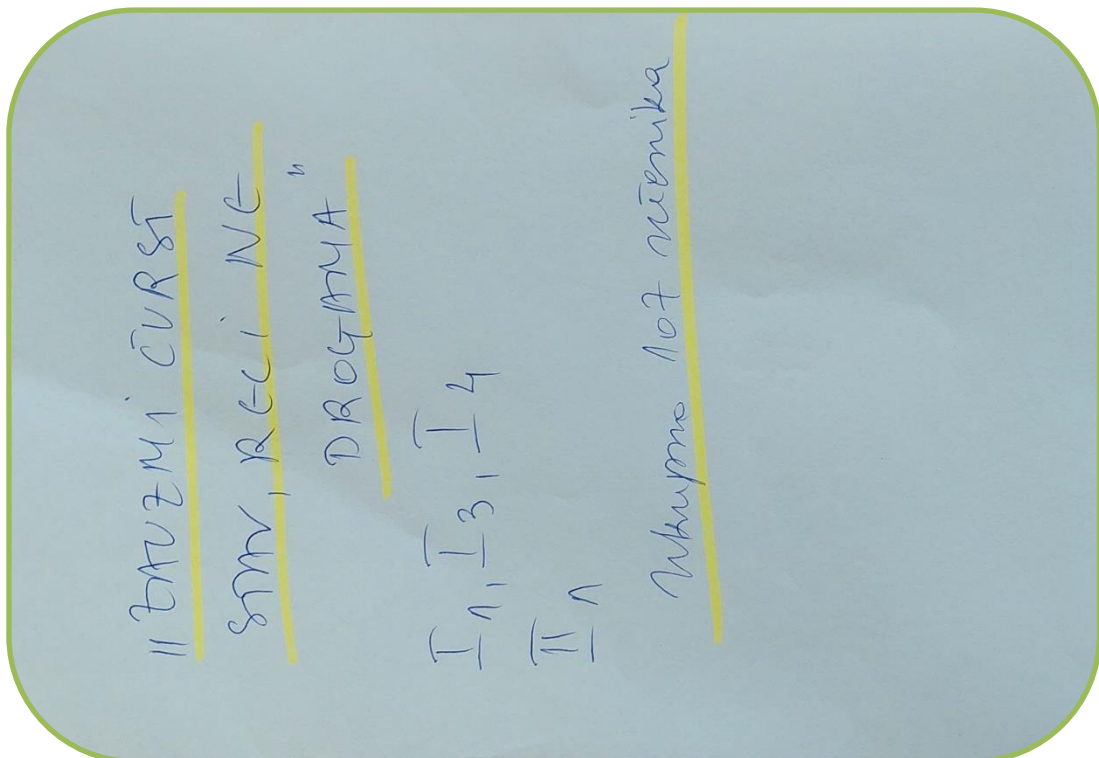 "ZAUZMI ČVRST
STAV, RECI NE
DROGAMA"
I1, I3, I4
II1
Ukupno 107 učenika